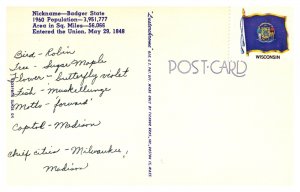 Nickname—Badger State
1960 Population—3,951,777
Area in Sq. Miles—56,066
Entered the Union, May 29, 1848
Bird - Robin
Tree - Sugar Maple
Flower - butterfly violet
Fish - Muskellunge
Motto - forward
Capitol - Madison
Chief cities - Milwaukee,
Madison
POST CARD
WISCONSIN